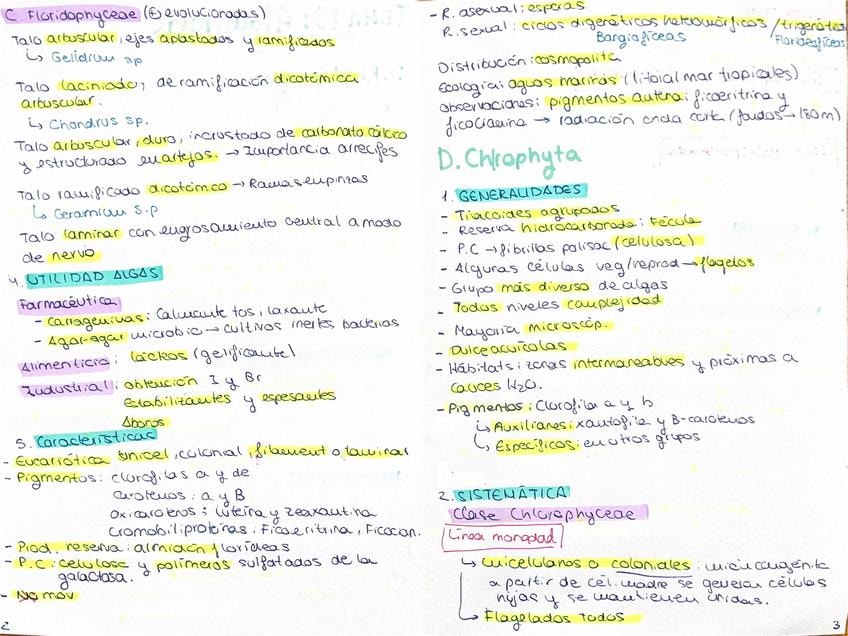 C. Floridophyceae (+ evolucionadas)
Talo arbustular, ejes aplastados y ramificados
↳ Gelidium sp
Talo laciniado, de ramificación dicotómica
arbustular.
↳ Chondrus sp.
Talo arbustular, duro, incrustado de carbonato cálcico
y estructurado en artejos. → Importancia arrecifes
Talo ramificado dicotómico → Ramas en pinzas
↳ Ceramium S.p
Talo laminar con engrosamiento central a modo
de nervio
4. UTILIDAD ALGAS
Farmacéutica
- Carrageninas: Calmante tos, laxante
- Agar-agar microbio → cultivos inertes bacterias
Alimenticia: lácteos (gelificante)
Industrial: obtención I y Br
Estabilizantes y espesantes
Abonos
5. Características
- Eucariótica unicel, colonial, filament o laminar
- Pigmentos: clorofilas a y de
carotenos: a y B
oxicarotenos: luteína y zeaxantina
cromobiliproteínas: Ficoeritrina, Ficocian.
- Prod. reserva: almidón florídeas
- P.C: celulosa y polímeros sulfatados de la
galactosa.
- No mov
2
- R. asexual: esporas
R. sexual: ciclos digenéticos heteromórficos / trigenético
Bangiofíceas Florideofíceas
Distribución: cosmopolita
Ecología: aguas maritas (litoral mar tropicales)
Observaciones: pigmentos antena: ficoeritrina y
ficocianina → radiación onda corta (fondos → 180m)
D. Chlrophyta
1. GENERALIDADES
- Tilacoides agrupados
- Reserva hidrocarbonada: fécula
- P.C → fibrillas polisac (celulosa)
- Algunas células veg/reprod → flagelos
- Grupo más diverso de algas
- Todos niveles complejidad
- Mayoría microscóp.
- Dulceacuícolas
- Hábitats: zonas intermareables y próximas a
cauces H2O.
- Pigmentos: Clorofila a y b
↳ Auxiliares: xantofila y B-carotenos
↳ Específicos: en otros grupos
2. SISTEMÁTICA
Clase Chlorophyceae
Línea monadad
↳ unicelulares o coloniales:
a partir de cél. madre se generan células
hijas y se mantienen unidas.
↳ Flagelados todos
3